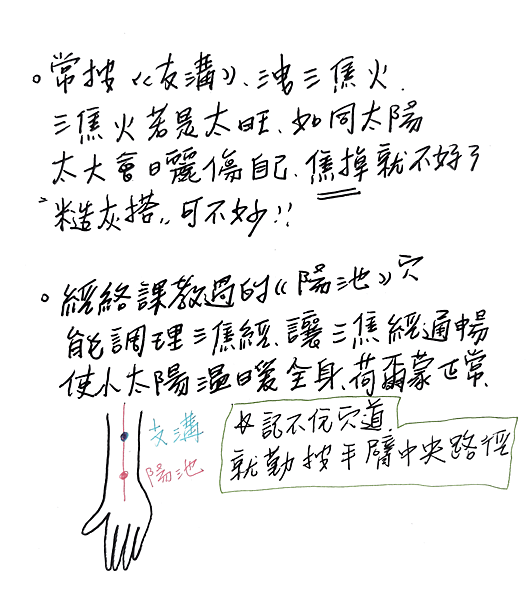 。常按《支溝》、洩三焦火.
三焦火若是太旺、如同太陽
太大會曬傷自己、焦掉就不好了
糟灰搭,,可不妙!!
。經絡課教過的《陽池》穴
能調理三焦經、讓三焦經通暢
使小太陽溫暖全身、荷爾蒙正常.
支溝
陽池
記不住穴道.
就勤按手臂中央路徑